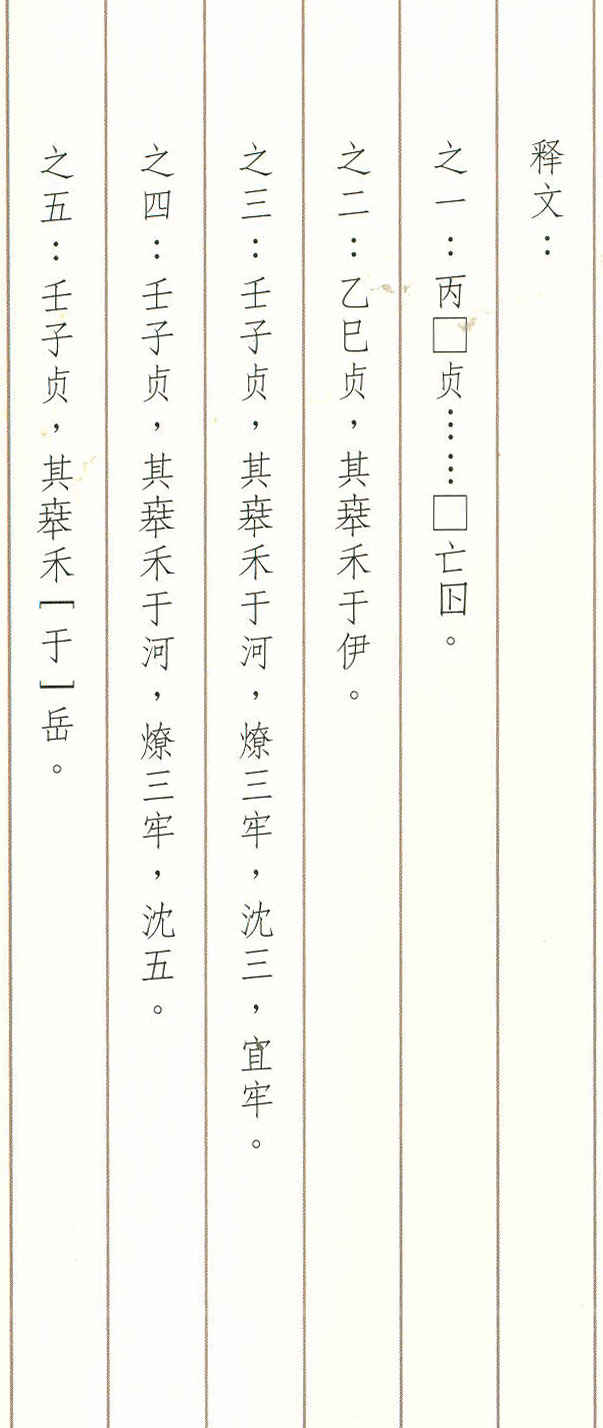 释文：
之一：丙□贞……□亡囚。
之二：乙巳贞，其𠦪禾于伊。
之三：壬子贞，其𠦪禾于河，燎三牢，沈三，宜牢。
之四：壬子贞，其𠦪禾于河，燎三牢，沈五。
之五：壬子贞，其𠦪禾［于］岳。